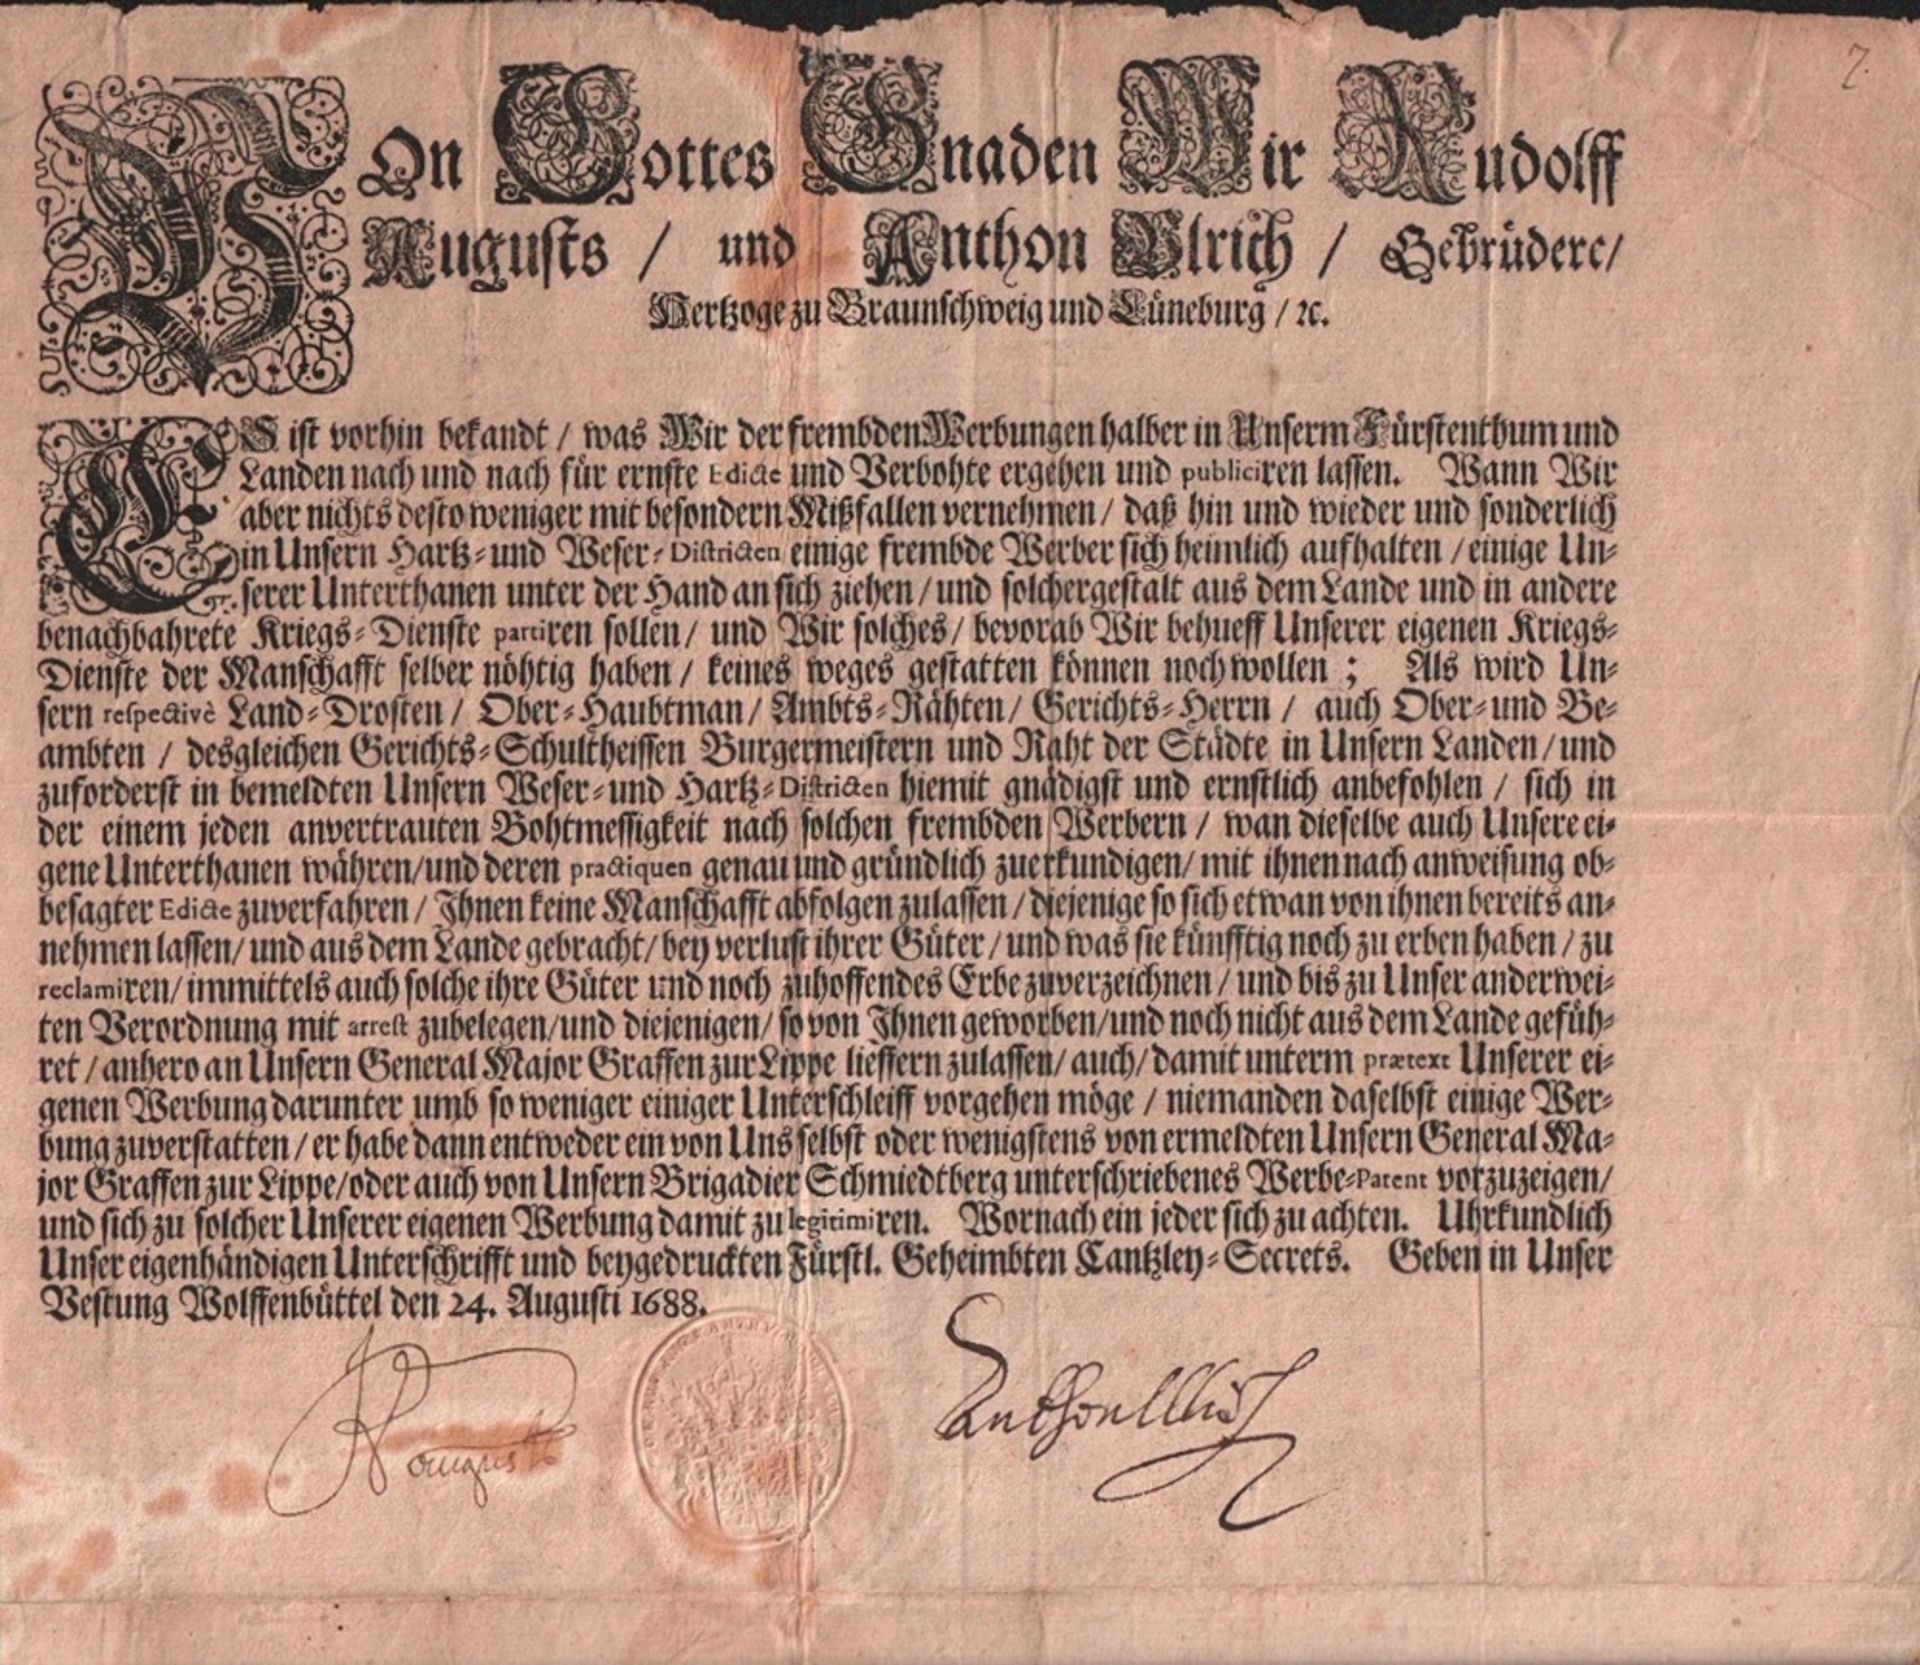 7.
VOn Gottes Gnaden Wir Rudolff
Augusts / und Anthon Ulrich / Gebrüdere/
Hertzoge zu Braunschweig und Lüneburg / ꝛc.
ES ist vorhin bekandt / was Wir der frembden Werbungen halber in Unserm Fürstenthum und
Landen nach und nach für ernste Edicte und Verbohte ergehen und publiciren lassen. Wann Wir
aber nichts desto weniger mit besondern Mißfallen vernehmen / daß hin und wieder und sonderlich
in Unsern Hartz-und Weser-Districten einige frembde Werber sich heimlich aufhalten / einige Un-
serer Unterthanen unter der Hand an sich ziehen / und solchergestalt aus dem Lande und in andere
benachbahrete Kriegs-Dienste partiren sollen / und Wir solches / bevorab Wir behueff Unserer eigenen Kriegs-
Dienste der Manschafft selber nöhtig haben / keines weges gestatten können noch wollen ; Als wird Un-
sern respectivè Land-Drosten / Ober-Haubtman / Ambts-Rähten / Gerichts-Herrn / auch Ober-und Be-
ambten / desgleichen Gerichts-Schultheissen Burgermeistern und Raht der Städte in Unsern Landen / und
zuforderst in bemeldten Unsern Weser-und Hartz-Districten hiemit gnädigst und ernstlich anbefohlen / sich in
der einem jeden anvertrauten Bohtmessigkeit nach solchen frembden Werbern / wan dieselbe auch Unsere ei-
gene Unterthanen währen/und deren practiquen genau und gründlich zuerkundigen/ mit ihnen nach anweisung ob-
besagter Edicte zuverfahren / Ihnen keine Manschafft abfolgen zulassen / diejenige so sich etwan von ihnen bereits an-
nehmen lassen/ und aus dem Lande gebracht/ bey verlust ihrer Güter / und was sie künfftig noch zu erben haben / zu
reclamiren/ immittels auch solche ihre Güter und noch zuhoffendes Erbe zuverzeichnen / und bis zu Unser anderwei-
ten Verordnung mit arrest zubelegen/und diejenigen/ so von Ihnen geworben/und noch nicht aus dem Lande gefüh-
ret / anhero an Unsern General Major Graffen zur Lippe lieffern zulassen/ auch/ damit unterm prætext Unserer ei-
genen Werbung darunter umb so weniger einiger Unterschleiff vorgehen möge / niemanden daselbst einige Wer-
bung zuverstatten / er habe dann entweder ein von Uns selbst oder wenigstens von ermeldten Unsern General Ma-
jor Graffen zur Lippe/oder auch von Unsern Brigadier Schmiedtberg unterschriebenes Werbe-Patent vorzuzeigen/
und sich zu solcher Unserer eigenen Werbung damit zu legitimiren. Wornach ein jeder sich zu achten. Uhrkundlich
Unser eigenhändigen Unterschrifft und beygedruckten Fürstl. Geheimbten Cantzley-Secrets. Geben in Unser
Vestung Wolffenbüttel den 24. Augusti 1688.
R Augusts
Anthon Ulrich